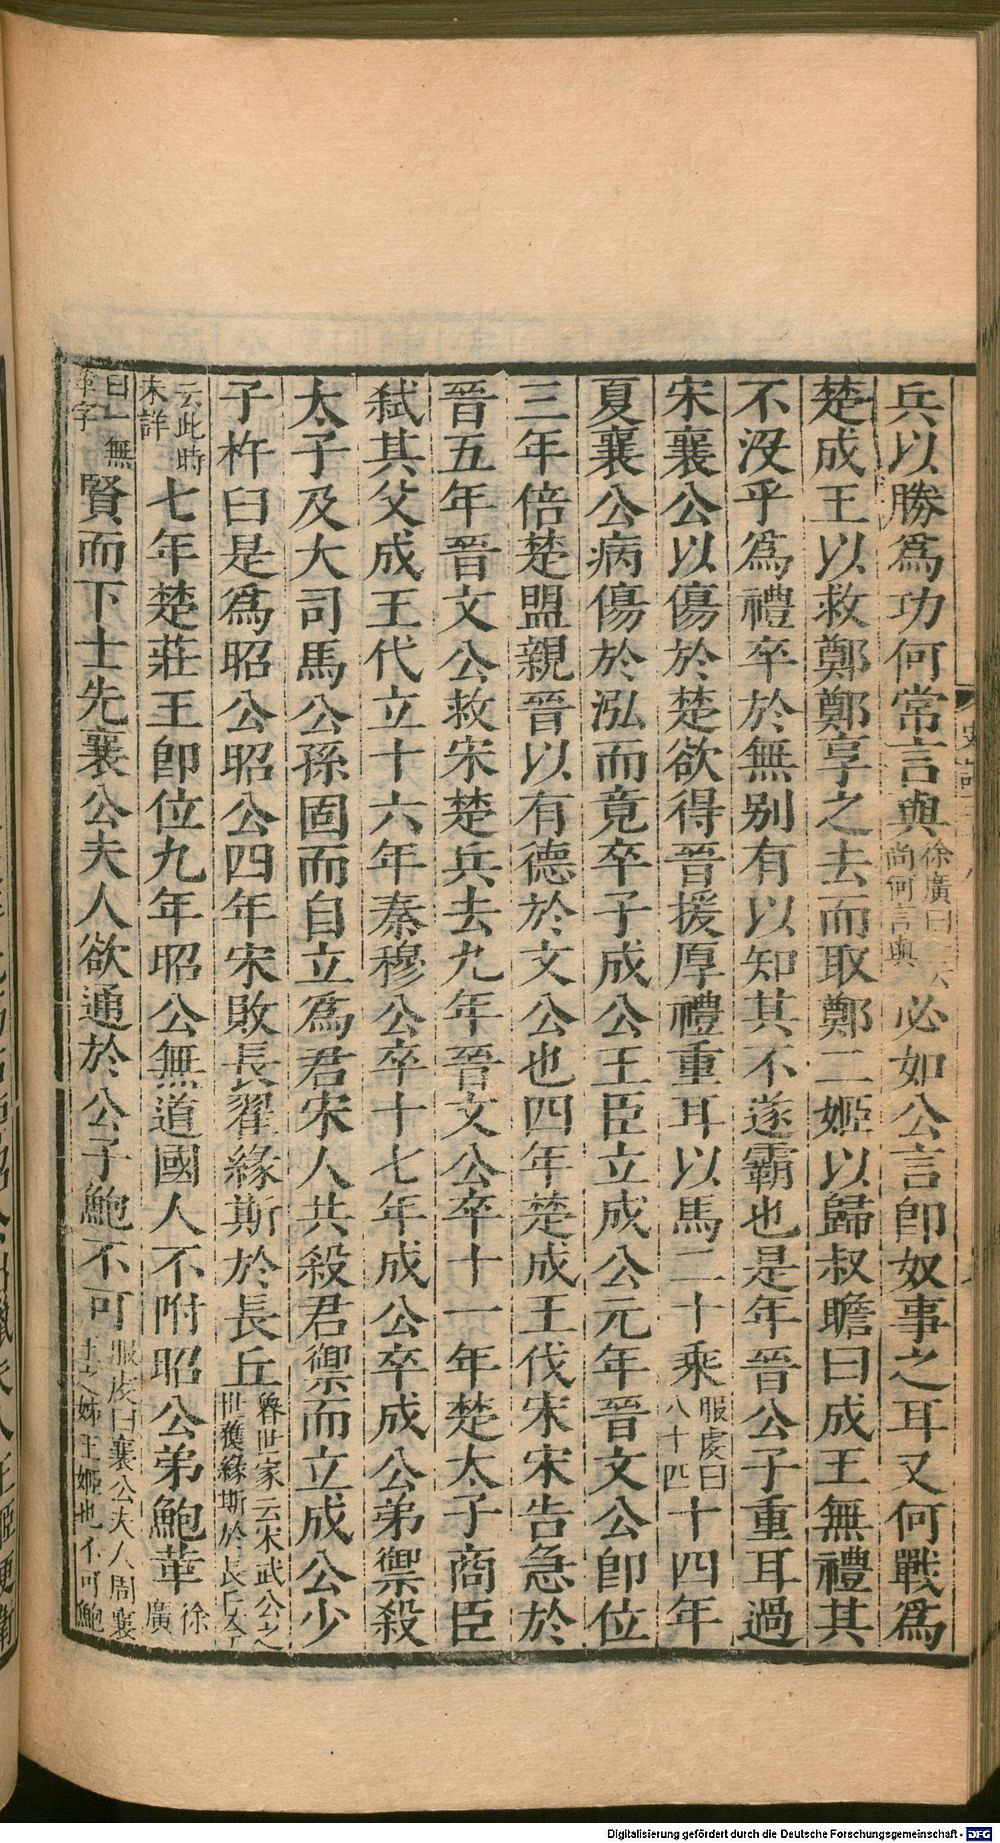 兵以勝爲功何常言與徐廣曰一云尚何言與必如公言卽奴事之耳又何戰爲
楚成王以救鄭鄭享之去而取鄭二姬以歸叔瞻曰成王無禮其
不沒乎爲禮卒於無别有以知其不遂霸也是年晉公子重耳過
宋襄公以傷於楚欲得晉援厚禮重耳以馬二十乘服虔曰八十四十四年
夏襄公病傷於泓而竟卒子成公王臣立成公元年晉文公卽位
三年倍楚盟親晉以有德於文公也四年楚成王伐宋宋告急於
晉五年晉文公救宋楚兵去九年晉文公卒十一年楚太子商臣
弑其父成王代立十六年秦穆公卒十七年成公卒成公弟禦殺
太子及大司馬公孫固而自立爲君宋人共殺君禦而立成公少
子杵臼是爲昭公昭公四年宋敗長翟緣斯於長丘魯世家云宋武公之世獲緣斯於長丘今
云此時未詳七年楚莊王卽位九年昭公無道國人不附昭公弟鮑革徐廣
曰一無革字賢而下士先襄公夫人欲通於公子鮑不可服虔曰襄公夫人周襄王之姊王姬也不可鮑
史記三十八
Digitalisierung gefördert durch die Deutsche Forschungsgemeinschaft - DFG